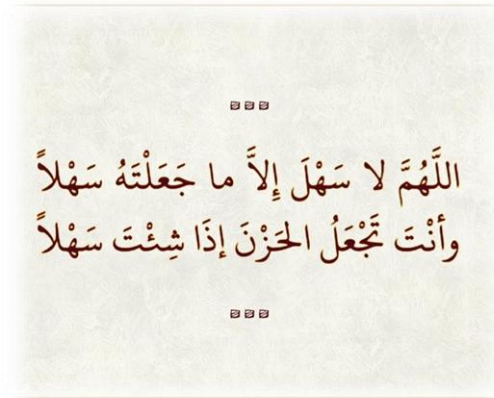 اللَّهُمَّ لا سَهْلَ إِلاَّ ما جَعَلْتَهُ سَهْلاً
وأنْتَ تَجْعَلُ الحَزْنَ إذَا شِئْتَ سَهْلاً